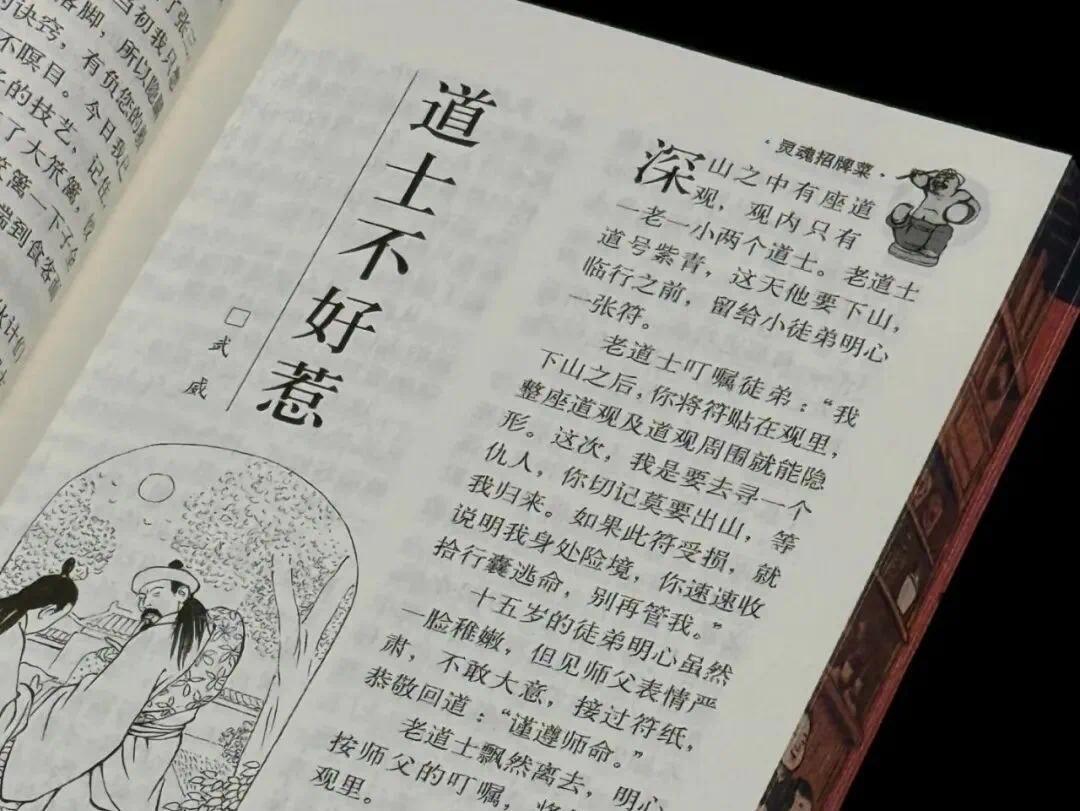 了张三
当初我只想
落脚，所以隐瞒
的诀窍，有负您的
不瞑目。今日我已
的技艺，记住
了大笊篱，
篱一下子
端到食客面
伙计们
·灵魂招牌菜·
道士不好惹
□武威
深山之中有座道
观，观内只有
一老一小两个道士。老道士
道号紫青，这天他要下山，
临行之前，留给小徒弟明心
一张符。
老道士叮嘱徒弟：“我
下山之后，你将符贴在观里，
整座道观及道观周围就能隐
形。这次，我是要去寻一个
仇人，你切记莫要出山，等
我归来。如果此符受损，就
说明我身处险境，你速速收
拾行囊逃命，别再管我。”
十五岁的徒弟明心虽然
一脸稚嫩，但见师父表情严
肃，不敢大意，接过符纸，
恭敬回道：“谨遵师命。”
老道士飘然离去，明心
按师父的叮嘱，将
观里。